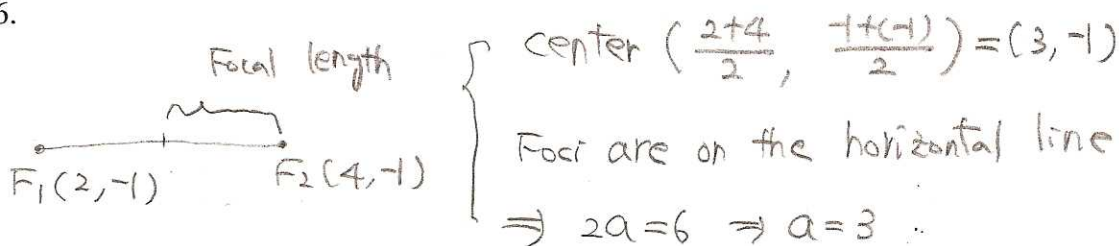 6.
Focal length
F₁(2,-1)
F₂(4,-1)
center (2+4/2, -1+(-1)/2) = (3,-1)
Foci are on the horizontal line
⇒ 2a=6 ⇒ a=3